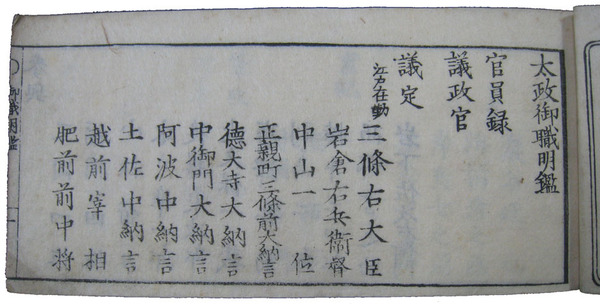 太政御職明鑑
官員録
議政官
議定
江戸在勤
三條右大臣
岩倉右兵衛督
中山一位
正親町三條前大納言
徳大寺大納言
中御門大納言
阿波中納言
土佐中納言
越前宰相
肥前前中将